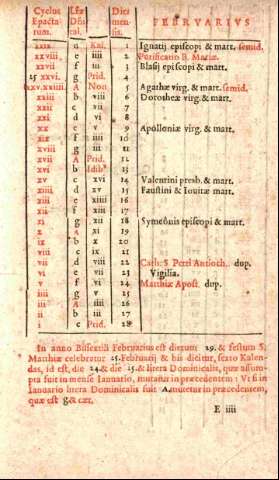 Cyclus Epacta rum. Lræ Dñi cal. Dies men sis. FEBRVARIVS
xxix d Kal. 1 Ignatij episcopi & mart. semid.
xxviii e iiii 2 Purificatio B. Mariæ.
xxvii f iii 3 Blasij episcopi & mart.
25 xxvi. g Prid. 4
xxv.xxiiii. A Non 5 Agathæ virg. & mart. semid.
xxiii b viii 6 Dorotheæ virg. & mart.
xxii c vii 7
xxi d vi 8
xx e v 9 Apolloniæ virg. & mart.
xix f iiii 10
xviii g iii 11
xvii A Prid. 12
xvi b Idib 13
xv c xvi 14 Valentini presb. & mart.
xiiii d xv 15 Faustini & Iouitæ mart.
xiii e xiiii 16
xii f xiii 17
xi g xii 18 Symeonis episcopi & mart.
x A xi 19
ix b x 20
viii c ix 21
vii d viii 22 Cath. S. Petri Antioch. dup.
vi e vii 23 Vigilia.
v f vi 24 Matthiæ Apost. dup.
iiii g v 25
iii A iiii 26
ii b iii 27
i c Prid. 28
In anno Bissextili Februarius est dierum 29. & festum S.
Matthiæ celebratur 25. Februarij & bis dicitur, sexto Kalen-
das, id est, die 24. & die 25. & litera Dominicalis, quæ assum-
pta fuit in mense Ianuario, mutatur in præcedentem: Vt si in
Ianuario litera Dominicalis fuit A. mutetur in præcedentem,
quæ est g & cæt.
E iiii